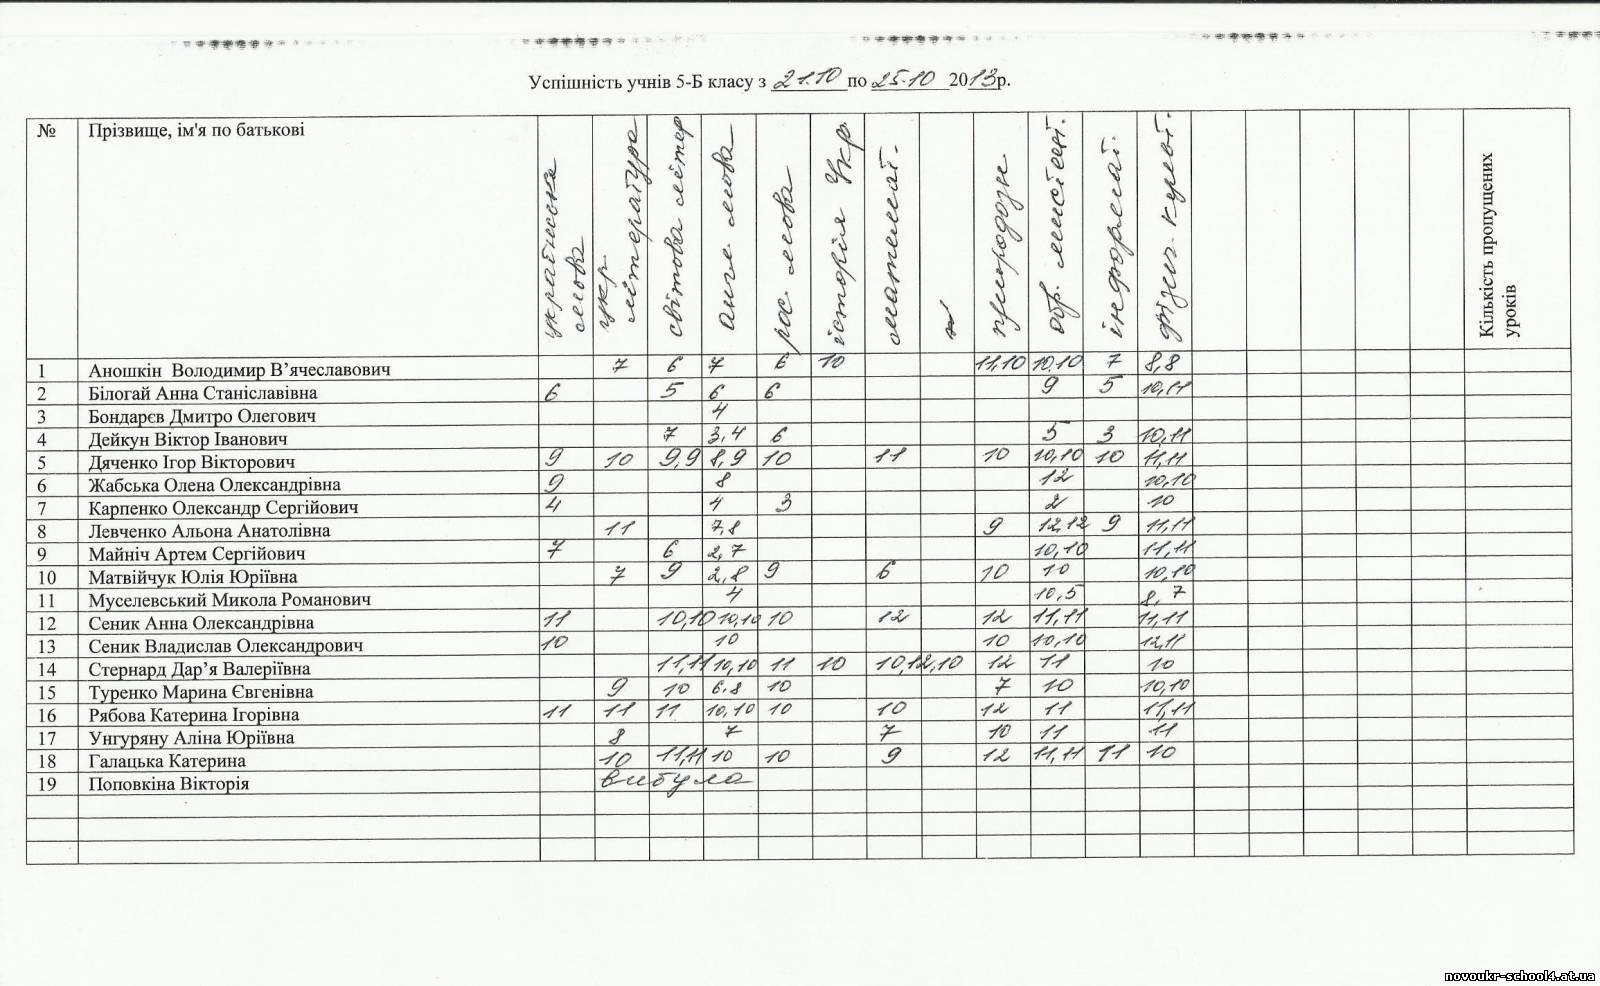 Успішність учнів 5-Б класу з 21.10 по 25.10 2013р.
№ Прізвище, ім'я по батькові українська мова укр література світова літер англ. мова рос. мова історія Укр. математ. природозн. обр. мистецт. інформат. фізич. культ. Кількість пропущених уроків
1 Аношкін Володимир В’ячеславович 7 6 7 6 10 11,10 10,10 7 8,8
2 Білогай Анна Станіславівна 6 5 6 6 9 5 10,11
3 Бондарєв Дмитро Олегович 4
4 Дейкун Віктор Іванович 7 3,4 6 5 3 10,11
5 Дяченко Ігор Вікторович 9 10 9,9 8,9 10 11 10 10,10 10 11,11
6 Жабська Олена Олександрівна 9 8 12 10,10
7 Карпенко Олександр Сергійович 4 4 3 2 10
8 Левченко Альона Анатолівна 11 7,8 9 12,12 9 11,11
9 Майніч Артем Сергійович 7 6 2,7 10,10 11,11
10 Матвійчук Юлія Юріївна 7 9 2,8 9 6 10 10 10,10
11 Муселевський Микола Романович 4 10,5 8,7
12 Сеник Анна Олександрівна 11 10,10 10,10 10 12 12 11,11 11,11
13 Сеник Владислав Олександрович 10 10 10 10,10 12,11
14 Стернард Дар’я Валеріївна 11,11 10,10 11 10 10,12,10 12 11 10
15 Туренко Марина Євгенівна 9 10 6.8 10 7 10 10,10
16 Рябова Катерина Ігорівна 11 11 11 10,10 10 10 12 11 11,11
17 Унгуряну Аліна Юріївна 8 7 7 10 11 11
18 Галацька Катерина 10 11,11 10 10 9 12 11,11 11 10
19 Поповкіна Вікторія вибула
novoukr-school4.at.ua